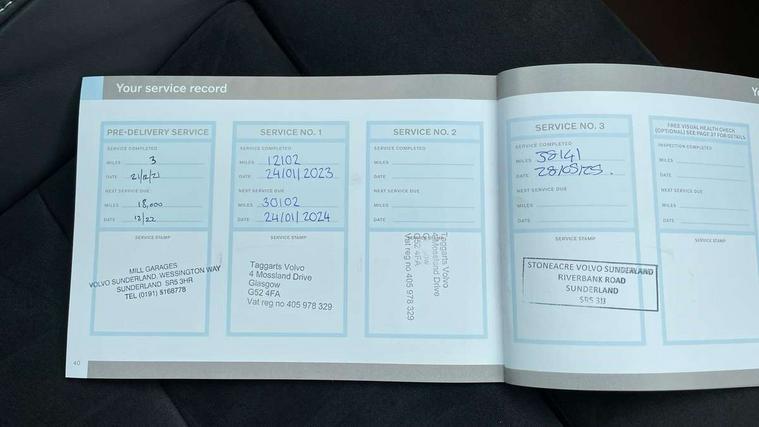 Your service record
PRE-DELIVERY SERVICE
SERVICE COMPLETED
MILES 3
DATE 21/12/21
NEXT SERVICE DUE
MILES 18,000
DATE 12/22
SERVICE STAMP
MILL GARAGES
VOLVO SUNDERLAND, WESSINGTON WAY
SUNDERLAND SR5 3HR
TEL (0191) 5168778
SERVICE NO. 1
SERVICE COMPLETED
MILES 12102
DATE 24/01/2023
NEXT SERVICE DUE
MILES 30102
DATE 24/01/2024
SERVICE STAMP
Taggarts Volvo
4 Mossland Drive
Glasgow
G52 4FA
Vat reg no 405 978 329
SERVICE NO. 2
SERVICE COMPLETED
MILES
DATE
NEXT SERVICE DUE
MILES
DATE
SERVICE STAMP
Taggarts Volvo
Mossland Drive
G52 4FA
Vat reg no 405 978 329
SERVICE NO. 3
SERVICE COMPLETED
MILES 38141
DATE 28/05/25.
NEXT SERVICE DUE
MILES
DATE
SERVICE STAMP
STONEACRE VOLVO SUNDERLAND
RIVERBANK ROAD
SUNDERLAND
SR5 3JJ
FREE VISUAL HEALTH CHECK
(OPTIONAL) SEE PAGE 37 FOR DETAILS
INSPECTION COMPLETED
MILES
DATE
NEXT SERVICE DUE
MILES
DATE
SERVICE STAMP
40